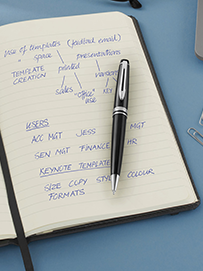 Use of templates (factual email)
space presentations
TEMPLATE CREATION printed various
sales "office" use KEY
USERS
ACC MGT JESS MGT
SEN MGT FINANCE HR
KEYNOTE TEMPLATE
SIZE COPY STYLE COLOUR
FORMATS